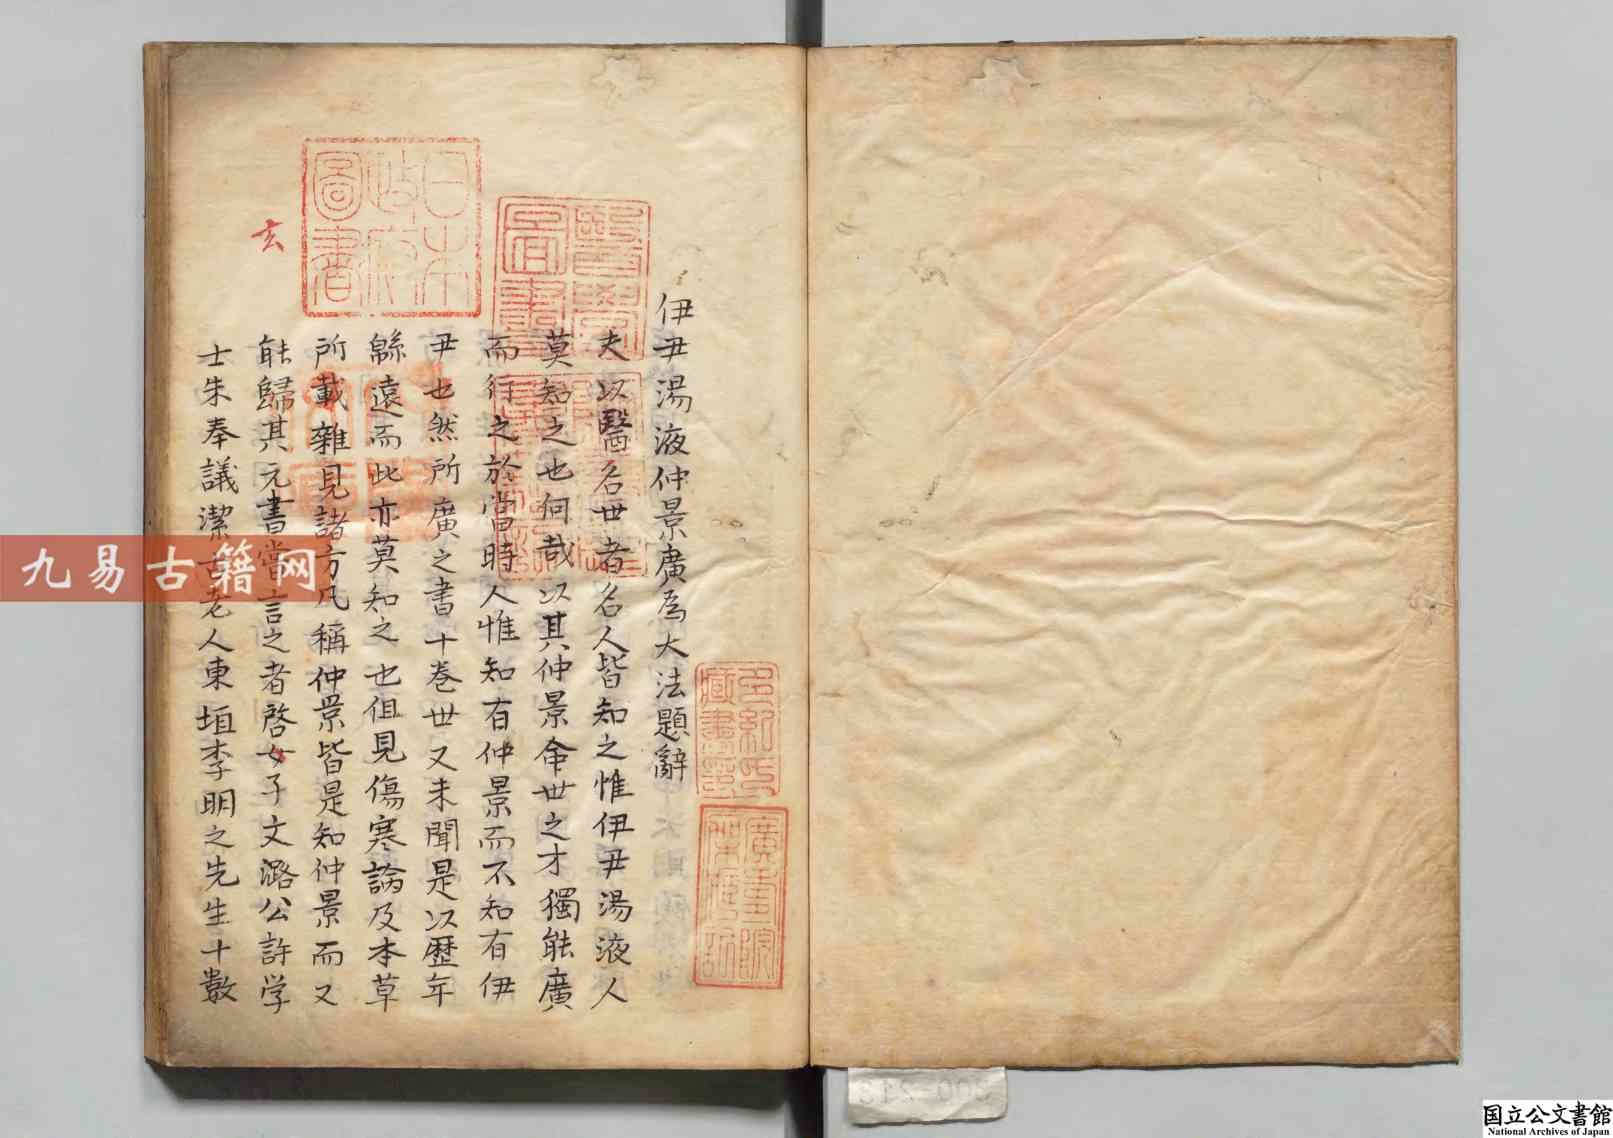 伊尹湯液仲景廣為大法題辭
夫以醫名世者名人皆知之惟伊尹湯液人
莫知之也何哉以其仲景命世之才獨能廣
而行之於當時人惟知有仲景而不知有伊
尹也然所廣之書十卷世又未聞是以歷年
緜遠而此亦莫知之也但見傷寒論及本草
所載雜見諸方凡稱仲景皆是知仲景而又
能歸其元書嘗言之者啓女子文潞公許学
士朱奉議潔古老人東垣李明之先生十數
玄
日本政府圖書
醫學圖書
多紀氏藏書印
廣壽院架藏記
九易古籍网
国立公文書館
National Archives of Japan